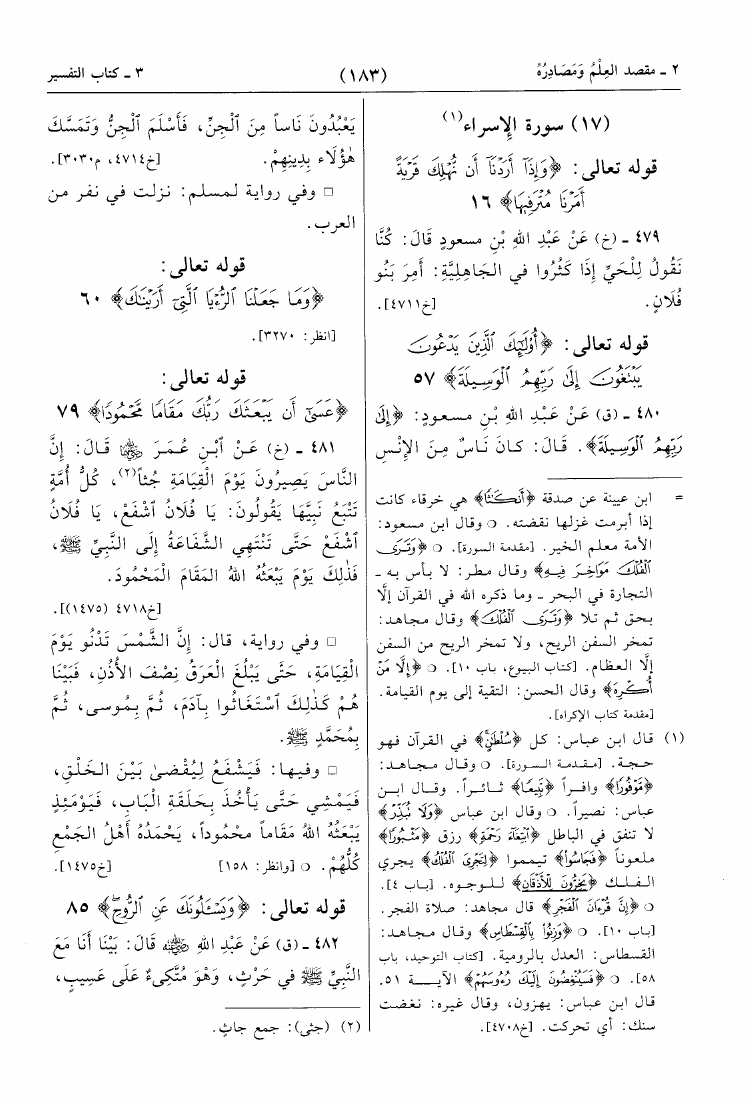 ٢ ـ مقصد العِلْمُ وَمَصَادِرُهُ
(١٨٣)
٣ ـ كتاب التفسير
(١٧) سورة الإسراء(١)
قوله تعالى: ﴿وَإِذَآ أَرَدْنَآ أَن نُّهْلِكَ قَرْيَةً
أَمَرْنَا مُتْرَفِيهَا﴾ ١٦
٤٧٩ ـ (خ) عَنْ عَبْدِ اللهِ بْنِ مسعودٍ قَالَ: كُنَّا
نَقُولُ لِلْحَيِّ إِذَا كَثُرُوا في الجَاهِلِيَّةِ: أَمِرَ بَنُو
فُلَانٍ. [خ٤٧١١].
قوله تعالى: ﴿أُوْلَٰٓئِكَ ٱلَّذِينَ يَدْعُونَ
يَبْتَغُونَ إِلَىٰ رَبِّهِمُ ٱلْوَسِيلَةَ﴾ ٥٧
٤٨٠ ـ (ق) عَنْ عَبْدِ اللهِ بْنِ مسعودٍ: ﴿إِلَىٰ
رَبِّهِمُ ٱلْوَسِيلَةَ﴾. قَالَ: كانَ نَاسٌ مِنَ الإِنْسِ
= ابن عيينة عن صدقة ﴿أَنكَٰثًا﴾ هي خرقاء كانت
إذا أبرمت غزلها نقضته. ○ وقال ابن مسعود:
الأمة معلم الخير. [مقدمة السورة]. ○ ﴿وَتَرَى
ٱلْفُلْكَ مَوَاخِرَ فِيهِ﴾ وقال مطر: لا بأس به ـ
التجارة في البحر ـ وما ذكره الله في القرآن إلَّا
بحق ثم تلا ﴿وَتَرَى ٱلْفُلْكَ﴾ وقال مجاهد:
تمخر السفن الريح، ولا تمخر الريح من السفن
إلَّا العظام. [كتاب البيوع، باب ١٠]. ○ ﴿إِلَّا مَنْ
أُكْرِهَ﴾ وقال الحسن: التقية إلى يوم القيامة.
[مقدمة كتاب الإكراه].
(١) قال ابن عباس: كل ﴿سُلْطَٰنٍ﴾ في القرآن فهو
حجة. [مقدمة السورة]. ○ وقال مجاهد:
﴿مَّوْفُورًا﴾ وافراً ﴿تَبِيعًا﴾ ثائراً. وقال ابن
عباس: نصيراً. ○ وقال ابن عباس ﴿وَلَا نُبَذِّرْ﴾
لا تنفق في الباطل ﴿ٱبْتِغَآءَ رَحْمَةٍ﴾ رزق ﴿مَثْبُورًا﴾
ملعوناً ﴿فَجَاسُوا۟﴾ تيمموا ﴿يُزْجِى ٱلْفُلْكَ﴾ يجري
الفلك ﴿يَخِرُّونَ لِلْأَذْقَانِ﴾ للوجوه. [باب ٤].
○ ﴿إِنَّ قُرْءَانَ ٱلْفَجْرِ﴾ قال مجاهد: صلاة الفجر.
[باب ١٠]. ○ ﴿وَزِنُوا۟ بِٱلْقِسْطَاسِ﴾ وقال مجاهد:
القسطاس: العدل بالرومية. [كتاب التوحيد، باب
٥٨]. ○ ﴿فَسَيُنْغِضُونَ إِلَيْكَ رُءُوسَهُمْ﴾ الآية ٥١.
قال ابن عباس: يهزون، وقال غيره: نغضت
سنك: أي تحركت. [خ٤٧٠٨].
يَعْبُدُونَ نَاساً مِنَ ٱلْجِنِّ، فَأَسْلَمَ ٱلْجِنُّ وَتَمَسَّكَ
هٰؤُلَاءِ بِدِينِهِمْ. [خ٤٧١٤، م٣٠٣٠].
□ وفي رواية لمسلم: نزلت في نفر من
العرب.
قوله تعالى:
﴿وَمَا جَعَلْنَا ٱلرُّءْيَا ٱلَّتِىٓ أَرَيْنَٰكَ﴾ ٦٠
[انظر: ٣٢٧٠].
قوله تعالى:
﴿عَسَىٰٓ أَن يَبْعَثَكَ رَبُّكَ مَقَامًا مَّحْمُودًا﴾ ٧٩
٤٨١ ـ (خ) عَنْ ٱبْنِ عُمَرَ رضي الله عنهما قَالَ: إِنَّ
النَّاسَ يَصِيرُونَ يَوْمَ الْقِيَامَةِ جُثاً(٢)، كُلُّ أُمَّةٍ
تَتْبَعُ نَبِيَّهَا يَقُولُونَ: يَا فُلَانُ ٱشْفَعْ، يَا فُلَانُ
ٱشْفَعْ حَتَّى تَنْتَهِي الشَّفَاعَةُ إِلَى النَّبِيِّ ﷺ،
فَذٰلِكَ يَوْمَ يَبْعَثُهُ اللهُ المَقَامَ الْمَحْمُودَ.
[خ٤٧١٨ (١٤٧٥)].
□ وفي رواية، قال: إِنَّ الشَّمْسَ تَدْنُو يَوْمَ
الْقِيَامَةِ، حَتَّى يَبْلُغَ الْعَرَقُ نِصْفَ الأُذُنِ، فَبَيْنَا
هُمْ كَذٰلِكَ ٱسْتَغَاثُوا بِآدَمَ، ثُمَّ بِمُوسى، ثُمَّ
بِمُحَمَّدٍ ﷺ.
□ وفيها: فَيَشْفَعُ لِيُقْضىٰ بَيْنَ الْخَلْقِ،
فَيَمْشِي حَتَّى يَأْخُذَ بِحَلَقَةِ الْبَابِ، فَيَوْمَئِذٍ
يَبْعَثُهُ اللهُ مَقَاماً محْمُوداً، يَحْمَدُهُ أَهْلُ الْجَمْعِ
كُلُّهُمْ. ○ [وانظر: ١٥٨] [خ١٤٧٥].
قوله تعالى: ﴿وَيَسْـَٔلُونَكَ عَنِ ٱلرُّوحِ﴾ ٨٥
٤٨٢ ـ (ق) عَنْ عَبْدِ اللهِ رضي الله عنه قَالَ: بَيْنَا أَنَا مَعَ
النَّبِيِّ ﷺ في حَرْثٍ، وَهْوَ مُتَّكِىءٌ عَلَى عَسِيبٍ،
(٢) (جثى): جمع جاثٍ.